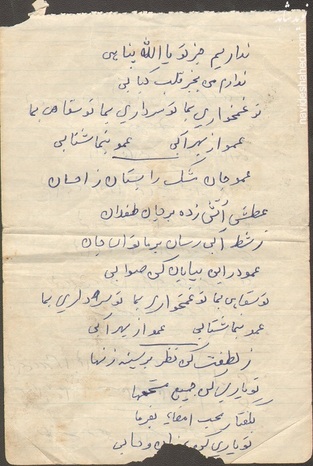 نداریم جز تو یا الله پناهی
ندارم من بجز قلب کبابی
تو غمخواری بما تو سرداری بما تو سقاهی بما
عمو از بهر آبی عمو بنما شتابی
عمو جان مشک را بستان ز احسان
عطش آتش زده بر جان طفلان
ز شط آبی رسان بر ما تو ای جان
عمو در این بیابان کن صوابی
تو سقاهی بما تو غمخواری بما تو سرداری بما
عمو بنما شتابی عمو از بهر آبی
ز لطفت کن نظر بر سینه زنها
تو یاری کن جمیع
بگفتار محب امضاء بفرما
تو یاری کن